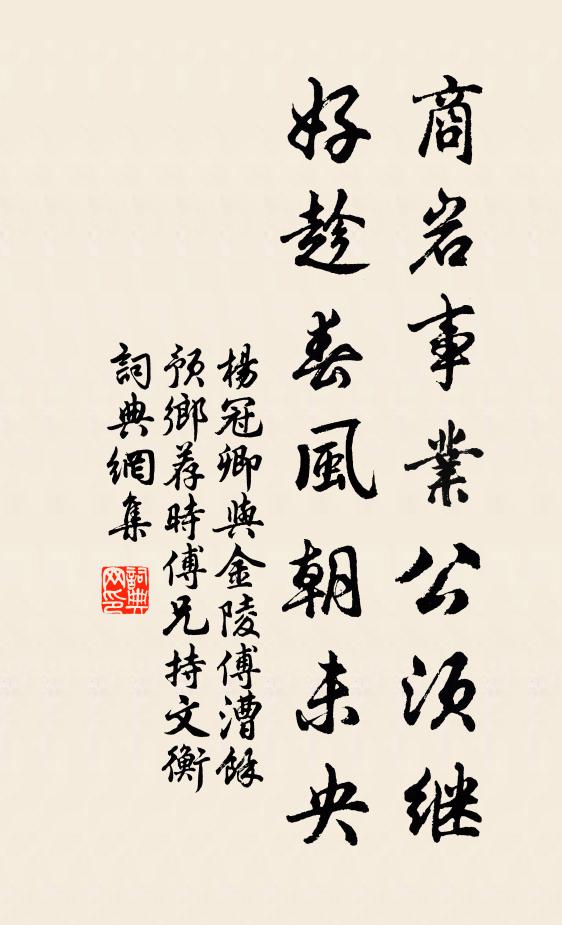 商岩事業公須继
好趁春風朝未央
楊冠卿與金陵傅漕餘
預鄉荐時傅兄持文衡
詞典網集
詞典
网印